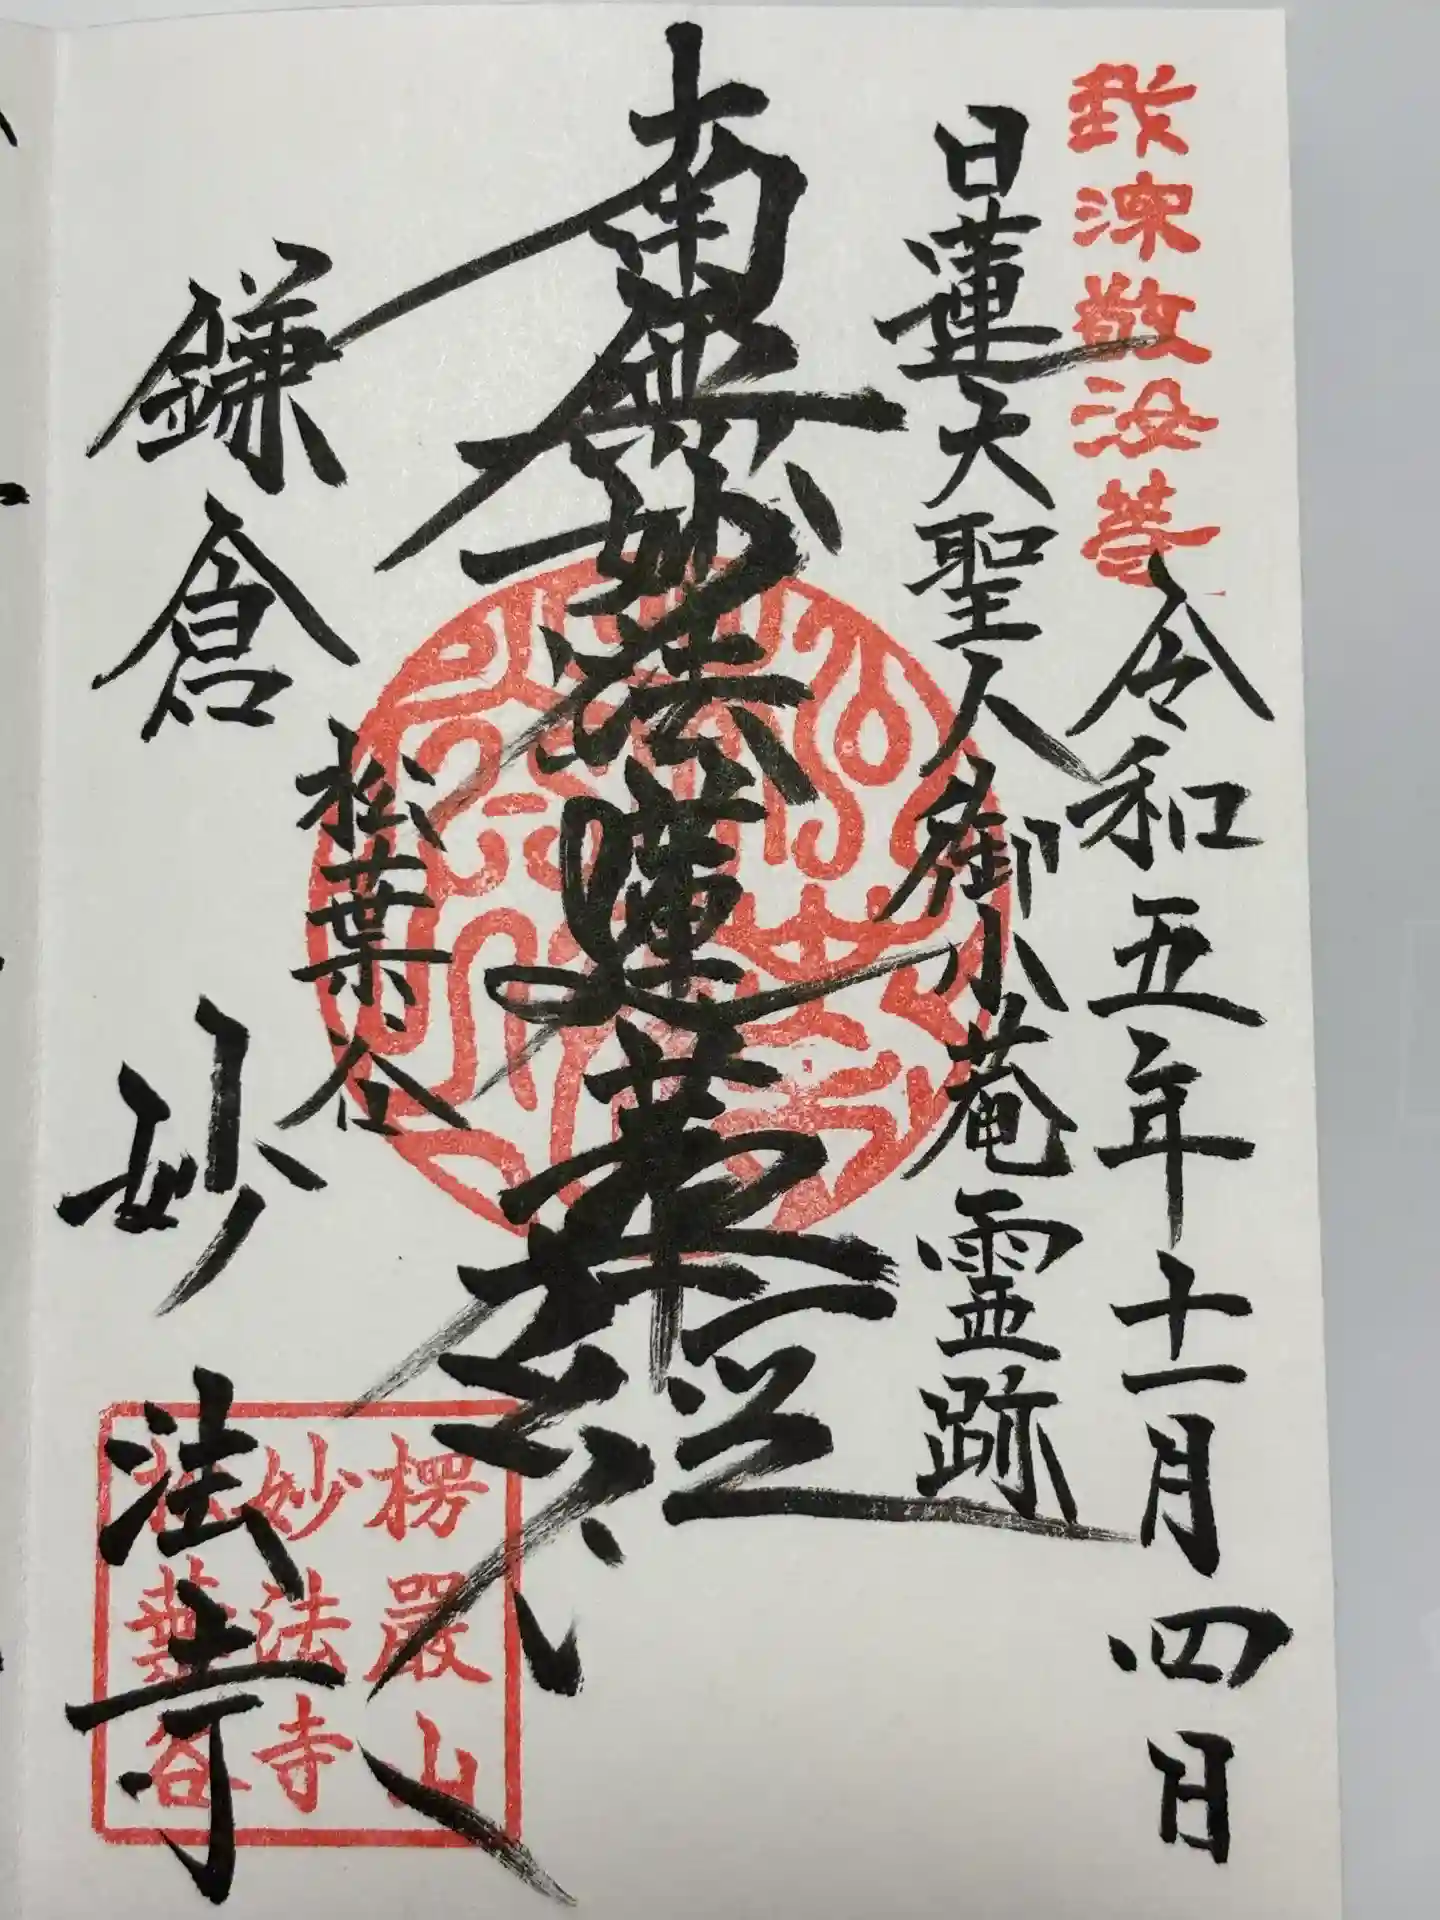 我深敬汝等
令和五年十一月四日
日蓮大聖人御小菴霊跡
南無妙法蓮華経
松葉谷
鎌倉 妙法寺
楞嚴山
妙法寺
松葉谷